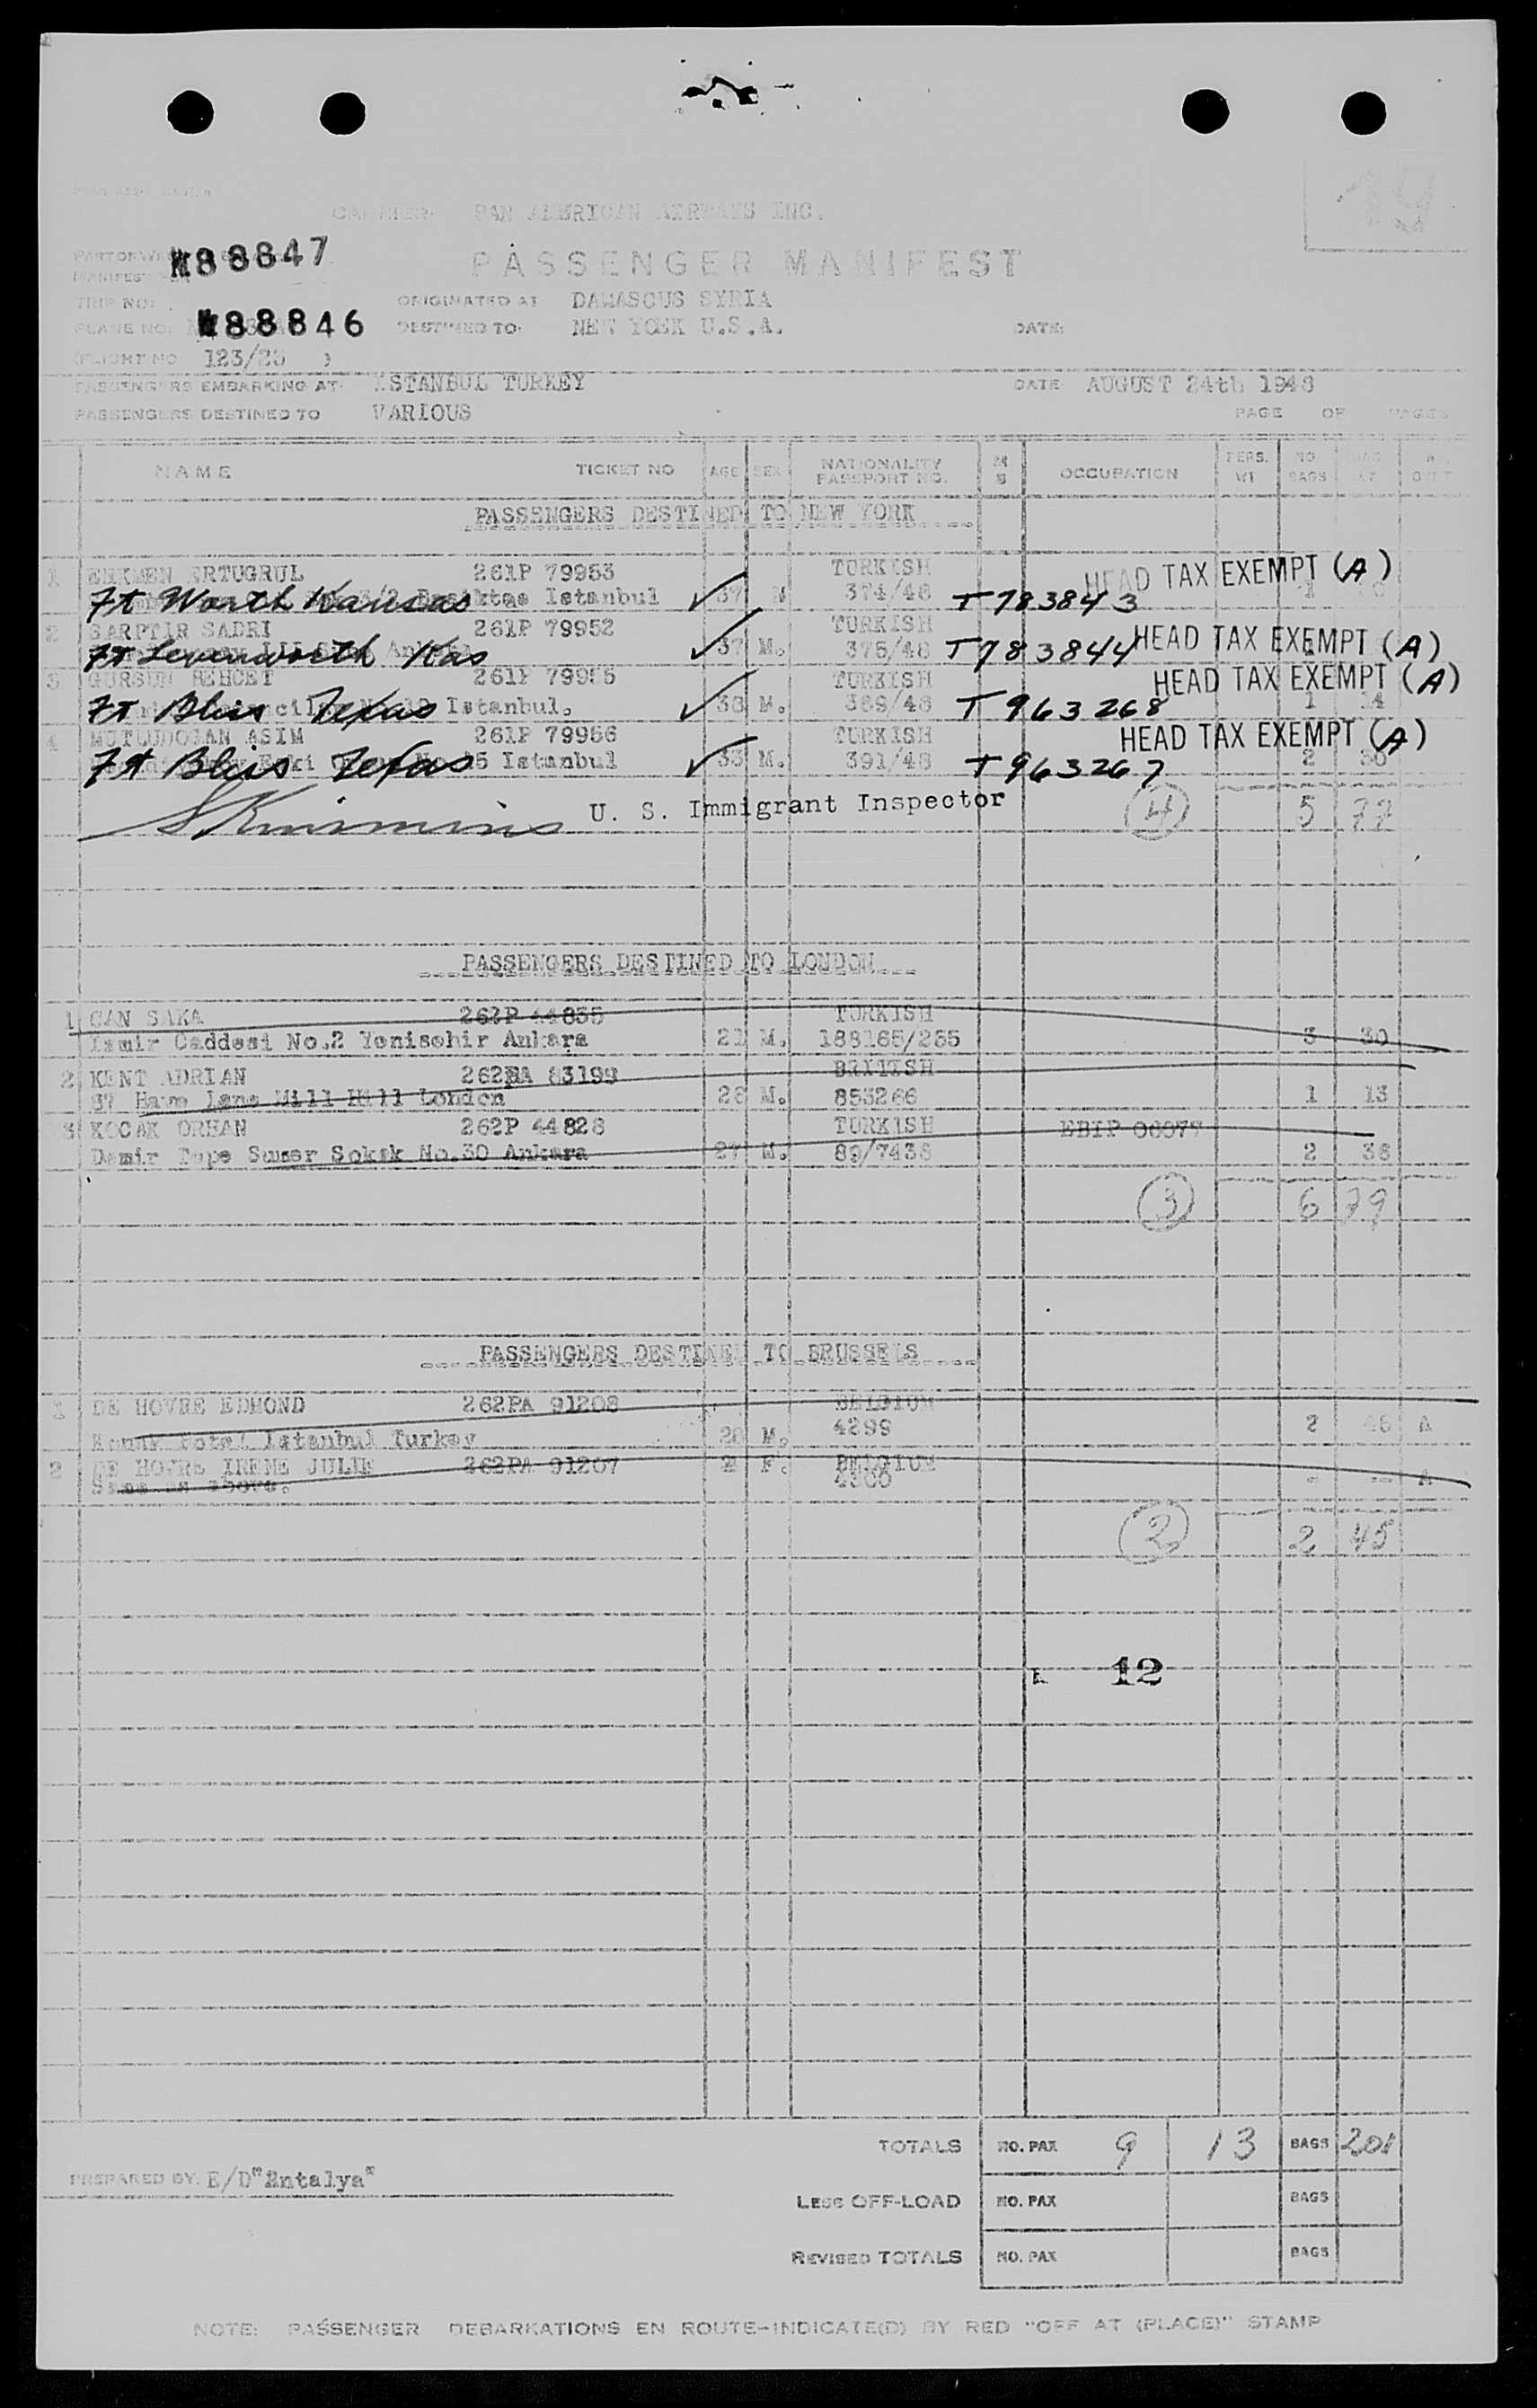 CARRIER: PAN AMERICAN AIRWAYS INC.
19
M88847
PASSENGER MANIFEST
TRIP NO:
ORIGINATED AT DAMASCUS SYRIA
PLANE NO: 88846 DESTINED TO: NEW YORK U.S.A. DATE:
FLIGHT NO 123/23 )
PASSENGERS EMBARKING AT: ISTANBUL TURKEY DATE AUGUST 24th 1948
PASSENGERS DESTINED TO VARIOUS
PAGE OF PAGES
NAME TICKET NO AGE SEX NATIONALITY PASSPORT NO. M S OCCUPATION PERS. WT NO BAGS
PASSENGERS DESTINED TO NEW YORK
1 ERKMEN ERTUGRUL 261P 79953 TURKISH HEAD TAX EXEMPT (A)
Ft Worth Kansas Istanbul 37 374/48 T783843 1
2 SARPTIR SADRI 261P 79952 TURKISH
Ft Levenworth Kas 37 M. 375/48 T783844 HEAD TAX EXEMPT (A)
3 GURSUN BEHCET 261P 79955 TURKISH HEAD TAX EXEMPT (A)
Ft Bliss Texas Istanbul. 38 M. 389/48 T963268 1 14
4 MUTLUDOGAN ASIM 261P 79956 TURKISH HEAD TAX EXEMPT (A)
Ft Bliss Texas Istanbul 33 M. 391/48 T963267 2 30
U. S. Immigrant Inspector 4 5 77
PASSENGERS DESTINED TO LONDON
1 CAN SAKA 262P 44835 TURKISH
Izmir Caddesi No.2 Yenisehir Ankara 21 M. 188165/265 3 30
2 KENT ADRIAN 262BA 83199 BRITISH
Lane Mill Hill London 26 M. 853266 1 13
3 KOCAK ORHAN 262P 44828 TURKISH
Demir Tepe Sumer Sokak No.30 Ankara 27 M. 89/7436 2 36
3 6 79
PASSENGERS DESTINED TO BRUSSELS
1 DE HOVRE EDMOND 262PA 91208 BELGIUM
Hotel Istanbul Turkey 28 M. 4299 2 45 A
2 DE HOVRE IRENE JULIE 262PA 91207 F. BELGIUM
Same as above. 4300 - -- A
2 2 45
12
TOTALS NO. PAX 9 13 BAGS 201
PREPARED BY. E/D"Antalya"
LESS OFF-LOAD NO. PAX BAGS
REVISED TOTALS NO. PAX BAGS
NOTE: PASSENGER DEBARKATIONS EN ROUTE-INDICATE(D) BY RED "OFF AT (PLACE)" STAMP